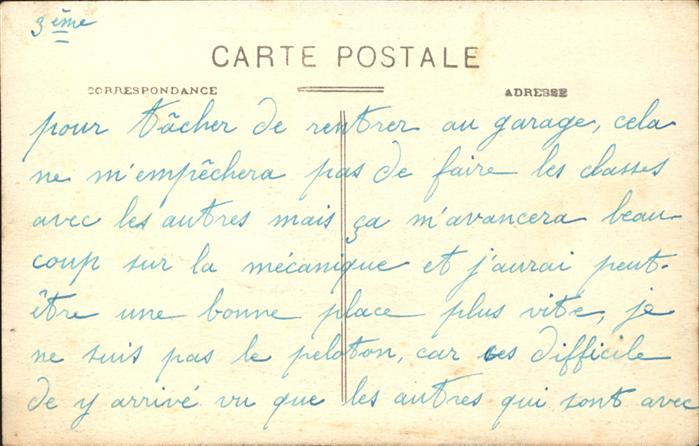 3ème
CARTE POSTALE
CORRESPONDANCE
ADRESSE
pour tâcher de rentrer au garage, cela
ne m'empêchera pas de faire les classes
avec les autres mais ça m'avancera beau-
coup sur la mécanique et j'aurai peut-
être une bonne place plus vite, je
ne suis pas le peloton, car ces difficile
de y arrivé vu que les autres qui sont avec